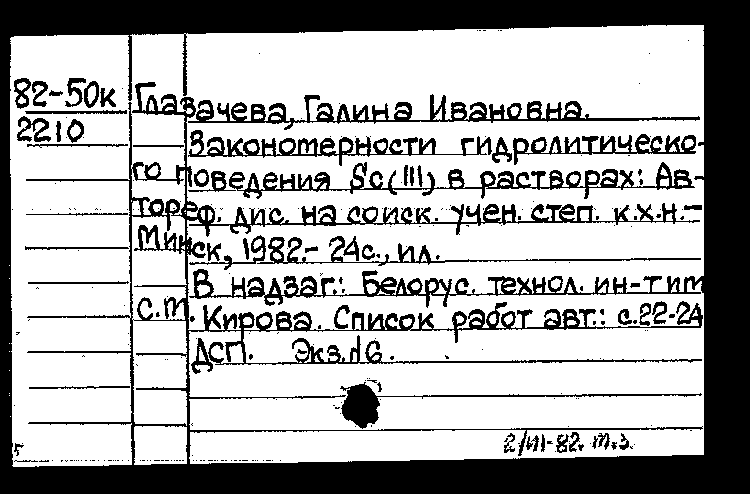 82-50к Глазачева, Галина Ивановна.
2210
Закономерности гидролитическо-
го поведения Sc(III) в растворах: Ав-
тореф. дис. на соиск. учен. степ. к.х.н.-
Минск, 1982.- 24с., ил.
В надзаг.: Белорус. технол. ин-т им
С.М. Кирова. Список работ авт.: с.22-24
ДСП. Экз.
2/III-82. т.з.